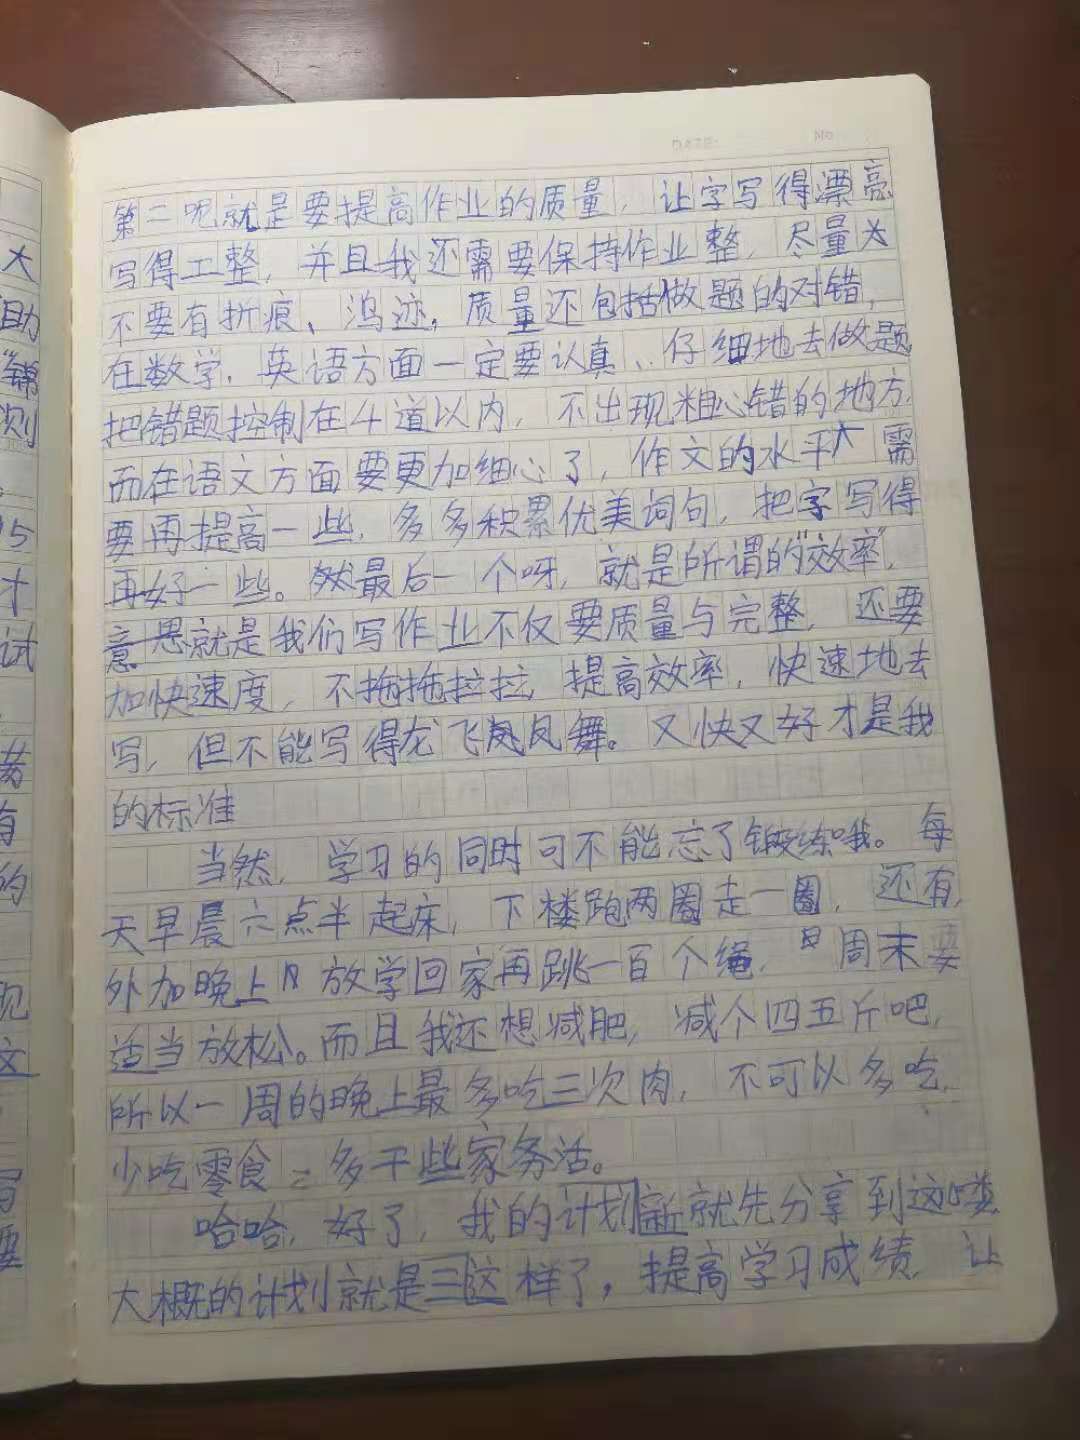 DATE: No
大
助
"锦
则
15
才
试
有
的
现
文
写
要
第二呢就是要提高作业的质量，让字写得漂亮
写得工整，并且我还需要保持作业整，尽量
不要有折痕、污迹，质量还包括做题的对错，
在数学，英语方面一定要认真、仔细地去做题
把错题控制在4道以内，不出现粗心错的地方，
而在语文方面要更加细心了，作文的水平需
要再提高一些，多多积累优美词句，把字写得
再好一些。然最后一个呀，就是所谓的"效率"，
意思就是我们写作业不仅要质量与完整，还要
加快速度，不拖拖拉拉，提高效率，快速地去
写，但不能写得龙飞凤舞。又快又好才是我
的标准
当然，学习的同时可不能忘了锻练哦。每
天早晨六点半起床，下楼跑两圈走一圈，还有，
外加晚上放学回家再跳一百个绳，周末要
适当放松。而且我还想减肥，减个四五斤吧，
所以一周的晚上最多吃三次肉，不可以多吃，
少吃零食，多干些家务活。
哈哈，好了，我的计划就先分享到这喽
大概的计划就是这样了，提高学习成绩，让